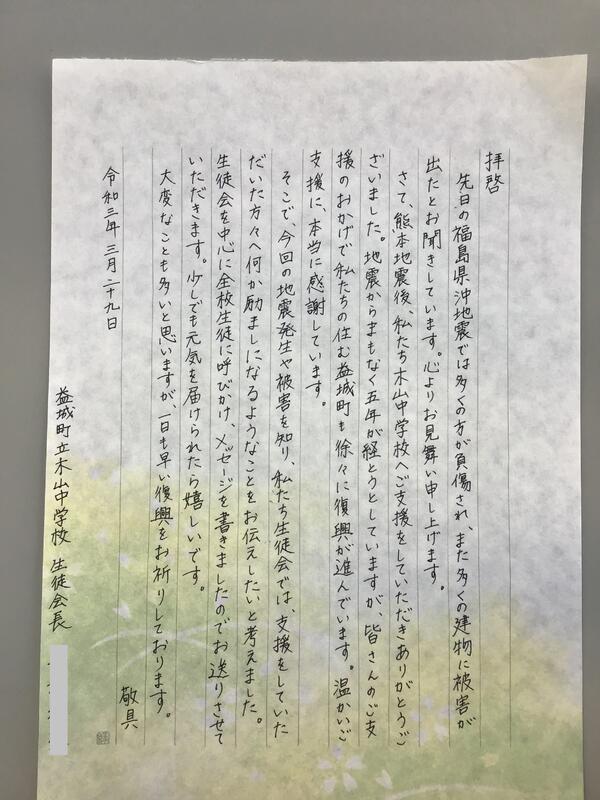 拝啓
先日の福島県沖地震では多くの方が負傷され、また多くの建物に被害が
出たとお聞きしています。心よりお見舞い申し上げます。
さて、熊本地震後、私たち木山中学校へご支援をしていただきありがとうご
ざいました。地震からまもなく五年が経とうとしていますが、皆さんのご支
援のおかげで私たちの住む益城町も徐々に復興が進んでいます。温かいご
支援に、本当に感謝しています。
そこで、今回の地震発生や被害を知り、私たち生徒会では、支援をしていた
だいた方々へ何か励ましになるようなことをお伝えしたいと考えました。
生徒会を中心に全校生徒に呼びかけ、メッセージを書きましたのでお送りさせて
いただきます。少しでも元気を届けられたら嬉しいです。
大変なことも多いと思いますが、一日も早い復興をお祈りしております。
敬具
令和三年三月二十九日
益城町立木山中学校 生徒会長